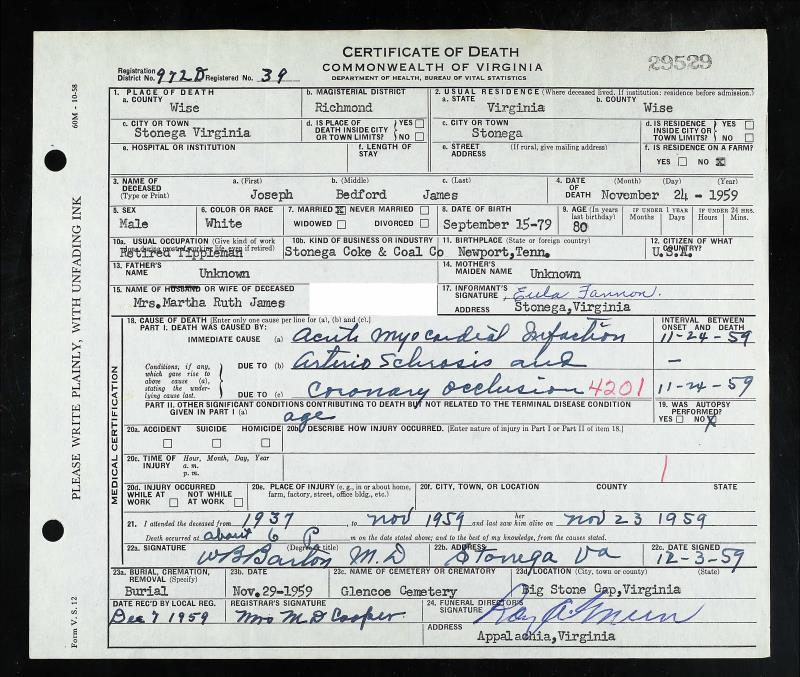 CERTIFICATE OF DEATH
COMMONWEALTH OF VIRGINIA
DEPARTMENT OF HEALTH, BUREAU OF VITAL STATISTICS
29529
Registration District No. 972D Registered No. 39
60M - 10-58
PLEASE WRITE PLAINLY, WITH UNFADING INK
Form V. S. 12
1. PLACE OF DEATH
a. COUNTY Wise
b. MAGISTERIAL DISTRICT Richmond
2. USUAL RESIDENCE (Where deceased lived. If institution: residence before admission.)
a. STATE Virginia
b. COUNTY Wise
c. CITY OR TOWN Stonega Virginia
d. IS PLACE OF DEATH INSIDE CITY OR TOWN LIMITS? YES NO
c. CITY OR TOWN Stonega
d. IS RESIDENCE INSIDE CITY OR TOWN LIMITS? YES NO
e. HOSPITAL OR INSTITUTION
f. LENGTH OF STAY
e. STREET ADDRESS (If rural, give mailing address)
f. IS RESIDENCE ON A FARM? YES NO X
3. NAME OF DECEASED (Type or Print)
a. (First) Joseph
b. (Middle) Bedford
c. (Last) James
4. DATE OF DEATH (Month) (Day) (Year) November 24 - 1959
5. SEX Male
6. COLOR OR RACE White
7. MARRIED X NEVER MARRIED WIDOWED DIVORCED
8. DATE OF BIRTH September 15-79
9. AGE (In years last birthday) 80
IF UNDER 1 YEAR Months Days
IF UNDER 24 HRS. Hours Min.
10a. USUAL OCCUPATION (Give kind of work done during most of working life, even if retired) Retired Tippleman
10b. KIND OF BUSINESS OR INDUSTRY Stonega Coke & Coal Co
11. BIRTHPLACE (State or foreign country) Newport,Tenn.
12. CITIZEN OF WHAT COUNTRY? U.S.A.
13. FATHER'S NAME Unknown
14. MOTHER'S MAIDEN NAME Unknown
15. NAME OF HUSBAND OR WIFE OF DECEASED Mrs.Martha Ruth James
17. INFORMANT'S SIGNATURE Eula Fannon.
ADDRESS Stonega,Virginia
MEDICAL CERTIFICATION
18. CAUSE OF DEATH [Enter only one cause per line for (a), (b) and (c).]
INTERVAL BETWEEN ONSET AND DEATH
PART I. DEATH WAS CAUSED BY:
IMMEDIATE CAUSE (a) Acute Myocardial Infaction 11-24-59
Conditions, if any, which gave rise to above cause (a), stating the underlying cause last.
DUE TO (b) Arterio Schrosis and —
DUE TO (c) Coronary Occlusion 4201 11-24-59
PART II. OTHER SIGNIFICANT CONDITIONS CONTRIBUTING TO DEATH BUT NOT RELATED TO THE TERMINAL DISEASE CONDITION GIVEN IN PART I (a) age
19. WAS AUTOPSY PERFORMED? YES NO X
20a. ACCIDENT SUICIDE HOMICIDE
20b. DESCRIBE HOW INJURY OCCURRED. (Enter nature of injury in Part I or Part II of item 18.)
20c. TIME OF INJURY Hour, Month, Day, Year a. m. p. m.
1
20d. INJURY OCCURRED WHILE AT WORK NOT WHILE AT WORK
20e. PLACE OF INJURY (e. g., in or about home, farm, factory, street, office bldg., etc.)
20f. CITY, TOWN, OR LOCATION COUNTY STATE
21. I attended the deceased from 1937, to Nov 1959 and last saw her him alive on Nov 23 1959
Death occurred at about 6 P m on the date stated above; and to the best of my knowledge, from the causes stated.
22a. SIGNATURE (Degree or title) W B Barton M.D
22b. ADDRESS Stonega Va
22c. DATE SIGNED 12-3-59
23a. BURIAL, CREMATION, REMOVAL (Specify) Burial
23b. DATE Nov.29-1959
23c. NAME OF CEMETERY OR CREMATORY Glencoe Cemetery
23d. LOCATION (City, town or county) (State) Big Stone Gap,Virginia
DATE REC'D BY LOCAL REG. Dec 7 1959
REGISTRAR'S SIGNATURE Mrs M D Cooper.
24. FUNERAL DIRECTOR'S SIGNATURE
ADDRESS Appalachia,Virginia